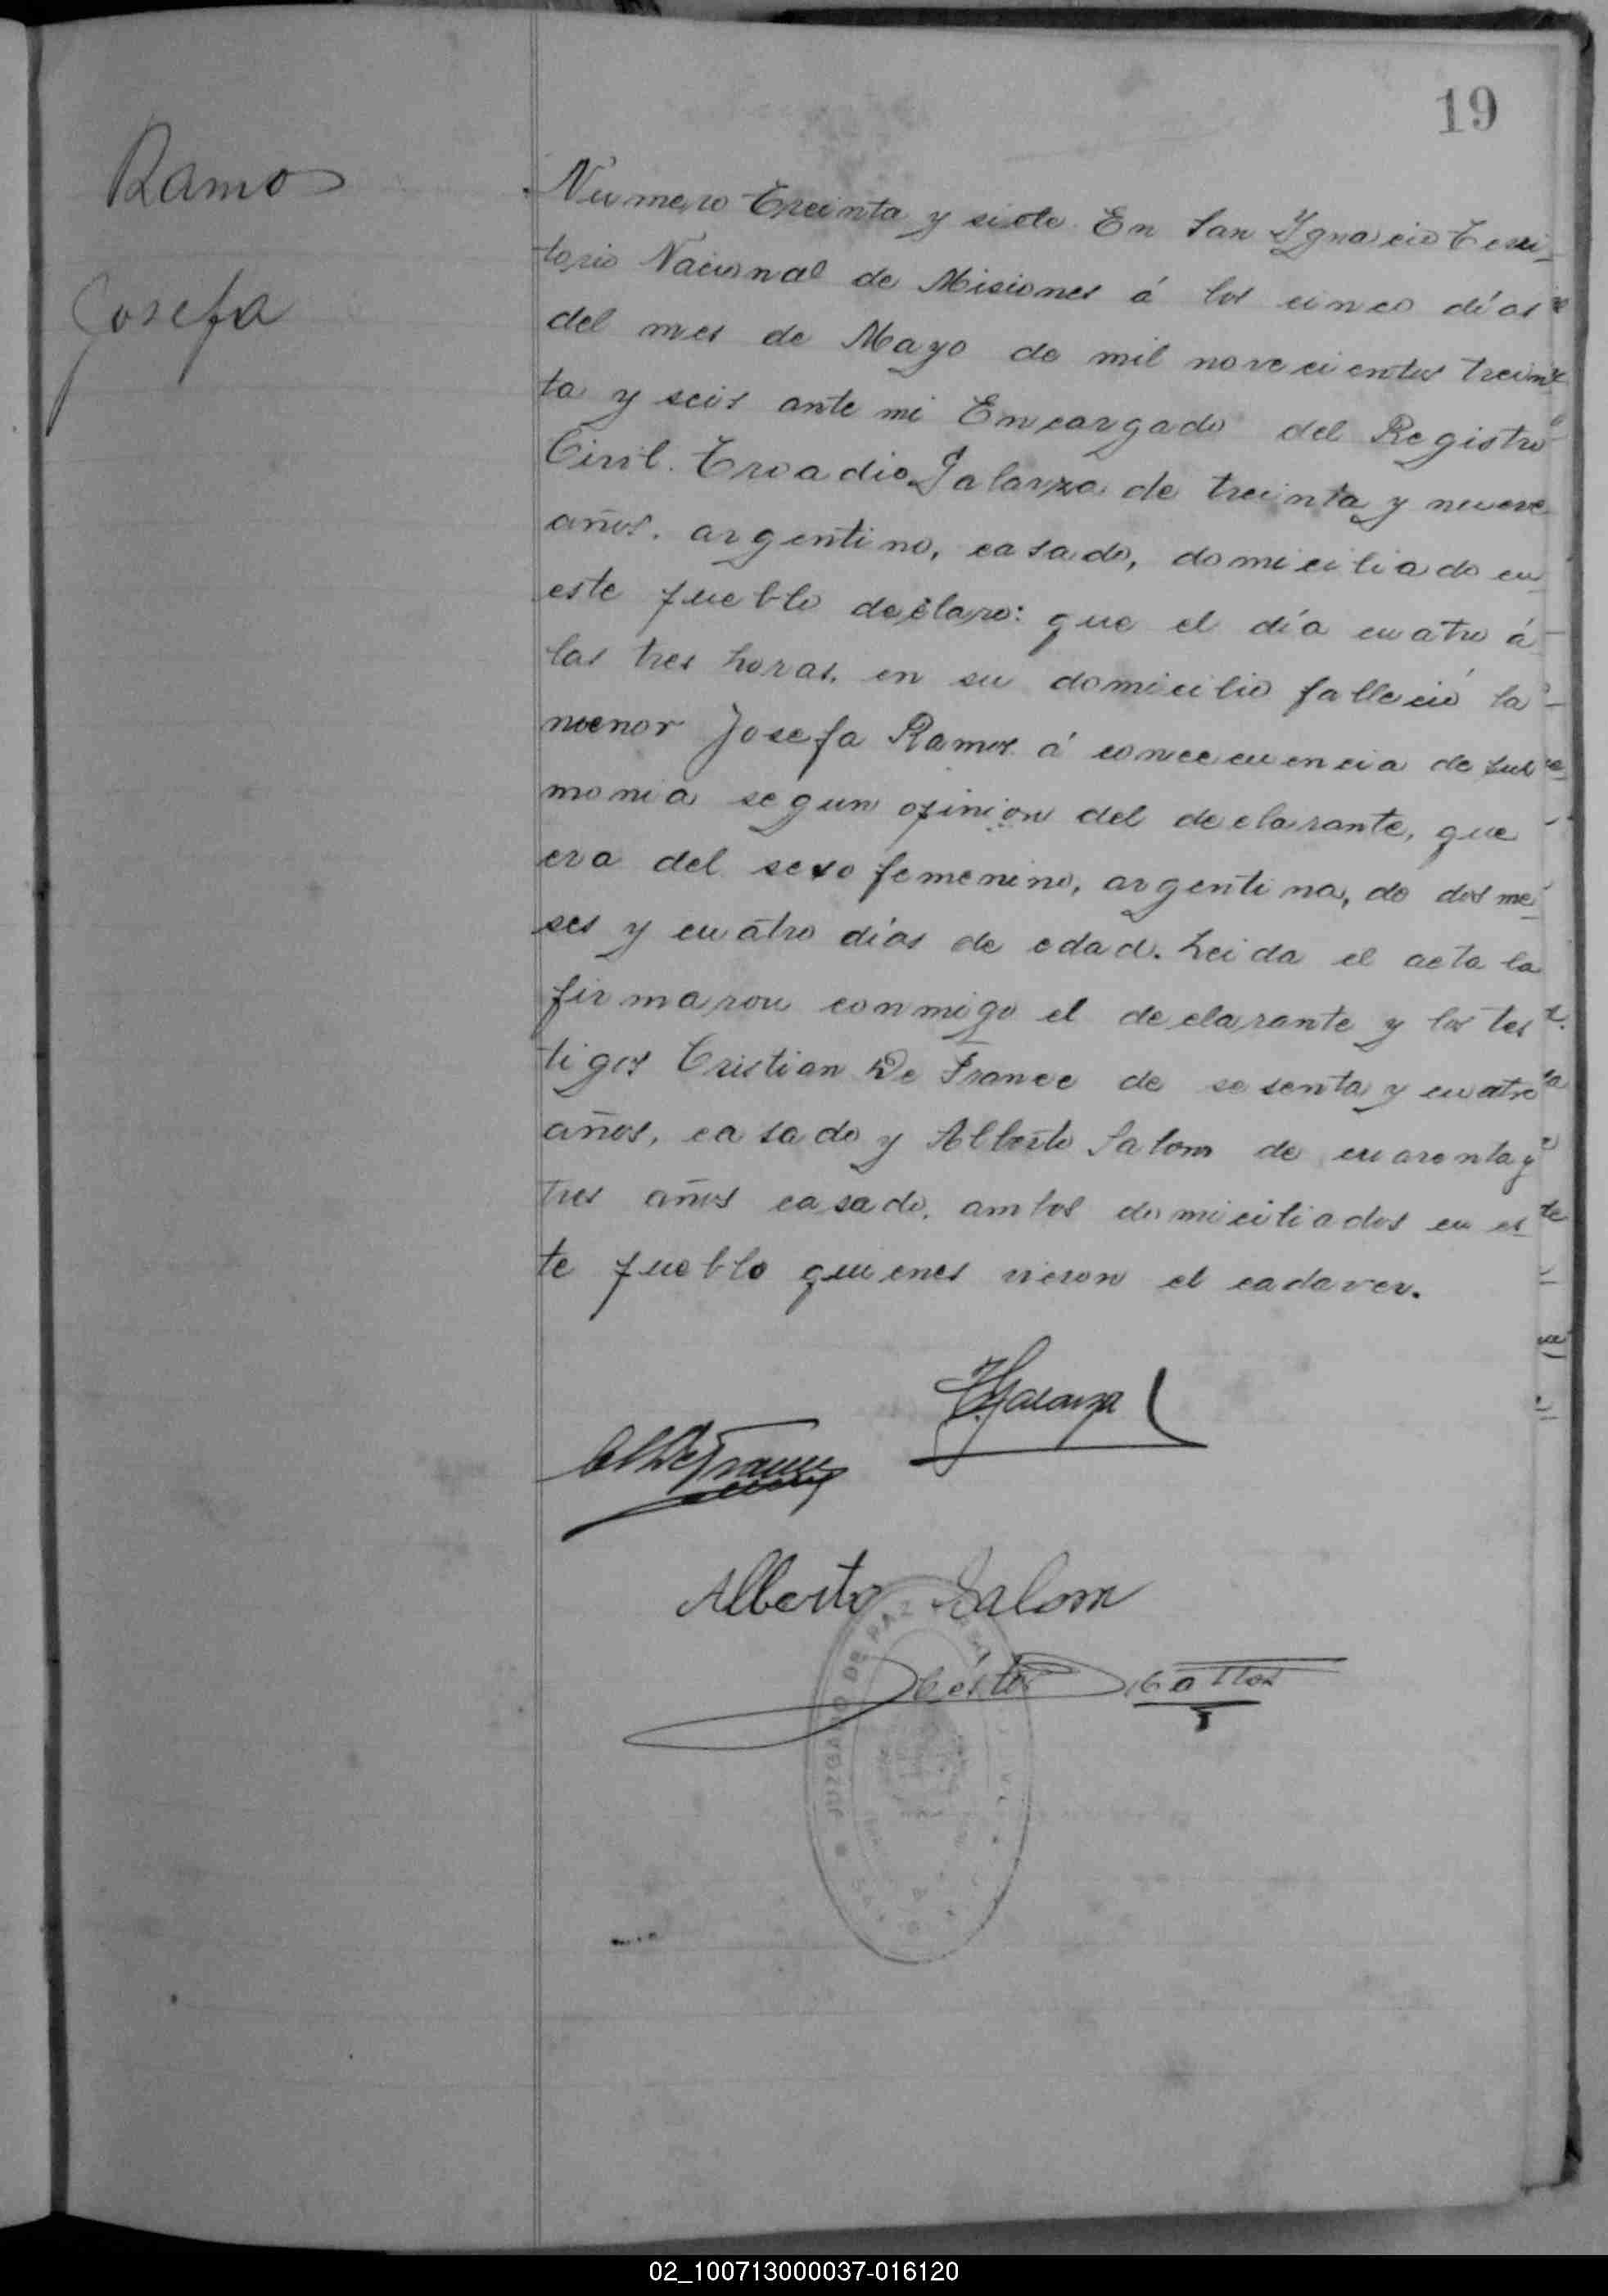 19
Ramos
Josefa
Numero Treinta y siete. En San Ygnacio Terri-
torio Nacional de Misiones á los cinco días
del mes de Mayo de mil novecientos trein-
ta y seis ante mi Encargado del Registro
Civil. Troadio Galarza de treinta y nueve
años, argentino, casado, domiciliado en
este pueblo declaro: que el día cuatro á
las tres horas, en su domicilio falleció la
menor Josefa Ramos á concecuencia de
monia segun opinion del declarante, que
era del sexo femenino, argentina, de dos me-
ses y cuatro días de edad. Leida el acta la
firmaron conmigo el declarante y los tes
tigos Cristian De France de sesenta y cuatro
años, casado y Alberto Salom de cuarenta y
tres años casado, ambos domiciliados en es
te pueblo quienes vieron el cadaver.
T. Galarza
Alberto Salom
JUZGADO DE PAZ
02_100713000037-016120